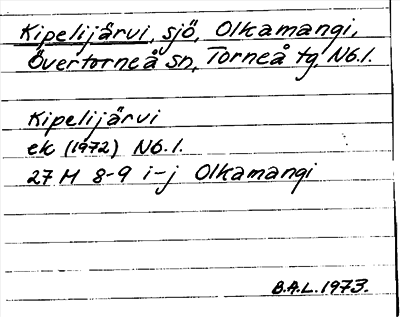 Kipelijärvi, sjö, Olkamangi,
Övertorneå sn, Torneå tg, Nb.l.
Kipelijärvi
ek (1972) Nb.l.
27 M 8-9 i-j Olkamangi
B.A.L. 1973.